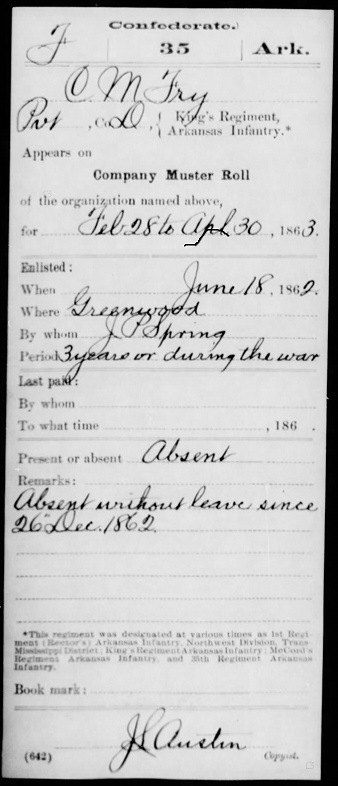 (Confederate.)
F 35 Ark.
C M Fry
Pvt, Co. D, { King's Regiment,
Arkansas Infantry.*
Appears on
Company Muster Roll
of the organization named above,
for Feb 28 to Apl 30, 1863.
Enlisted:
When June 18, 1862.
Where Greenwood
By whom J P Spring
Period 3 years or during the war
Last paid:
By whom
To what time , 186 .
Present or absent Absent
Remarks:
Absent without leave since
26 Dec. 1862
*This regiment was designated at various times as 1st Regi-
ment (Rector's) Arkansas Infantry, Northwest Division, Trans-
Mississippi District; King's Regiment Arkansas Infantry; McCord's
Regiment Arkansas Infantry, and 35th Regiment Arkansas
Infantry.
Book mark:
J L Austin
(642) Copyist.